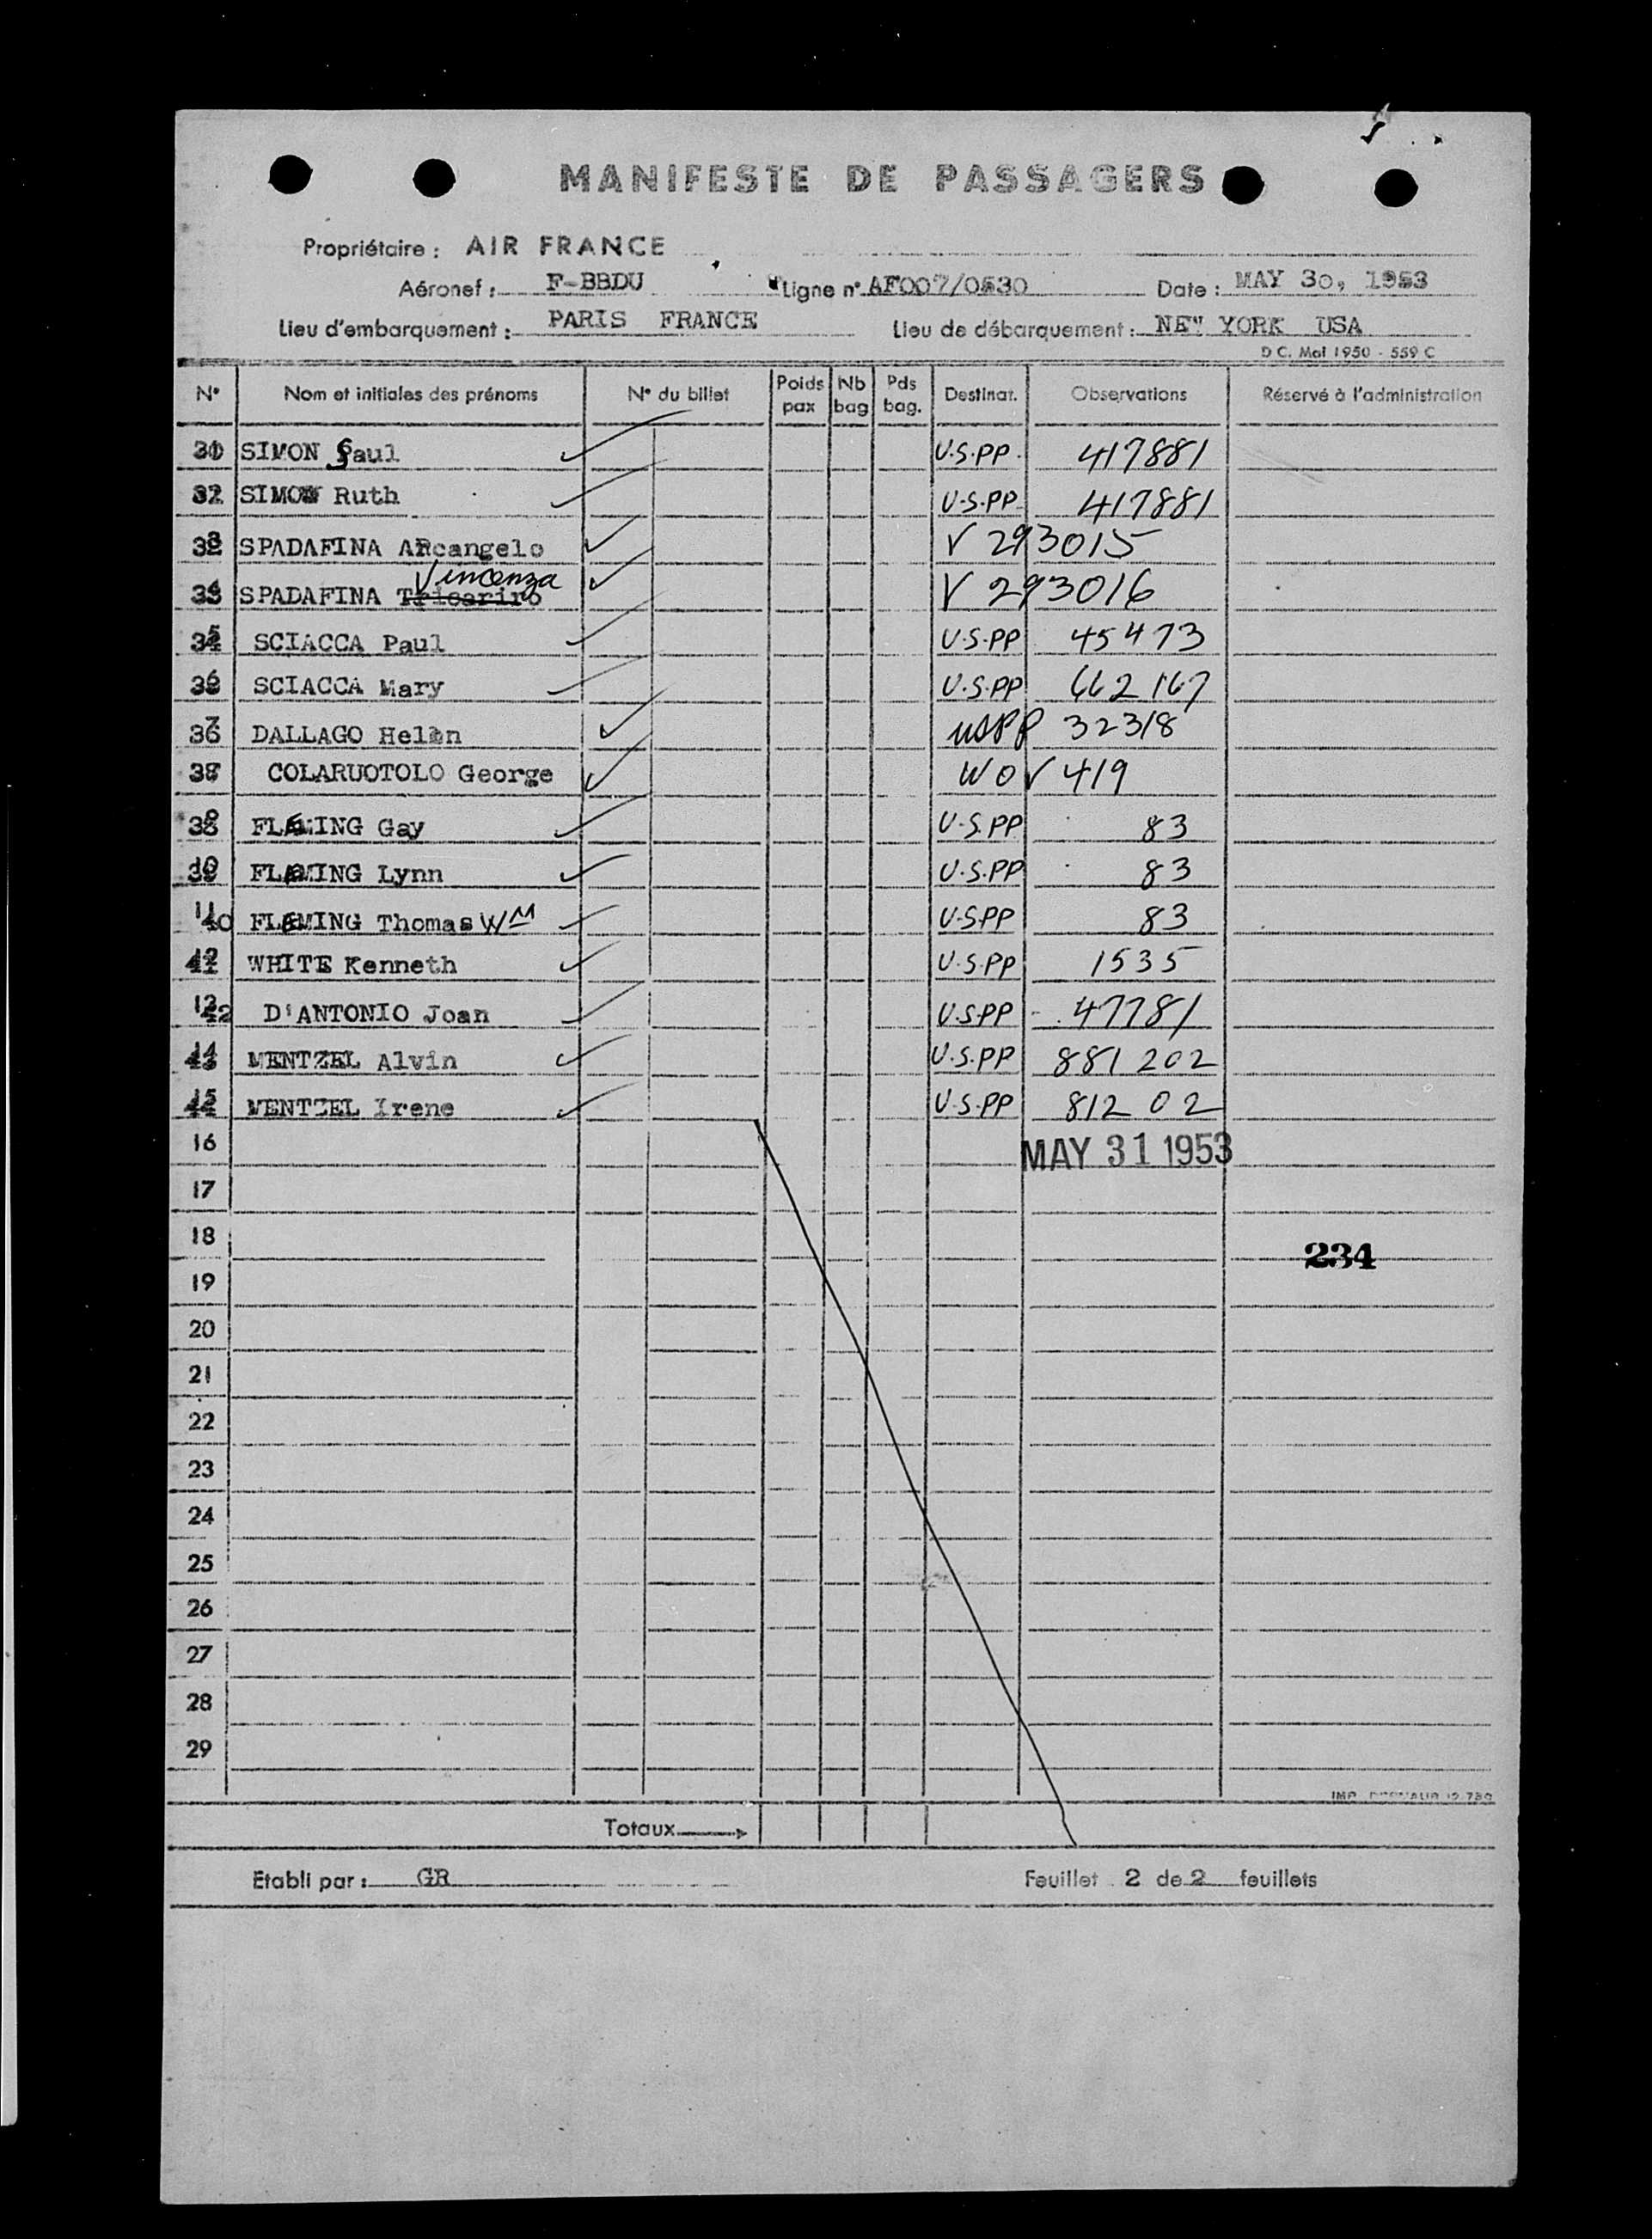 MANIFESTE DE PASSAGERS
Propriétaire : AIR FRANCE
Aéronef : F-BBDU Ligne n° AF007/0530 Date : MAY 30, 1953
Lieu d'embarquement : PARIS FRANCE Lieu de débarquement : NEW YORK USA
D C. Mai 1950 - 559 C
N° Nom et initiales des prénoms N° du billet Poids pax Nb bag Pds bag. Destinat. Observations Réservé à l'administration
SIMON Paul U.S.PP. 417881
SIMON Ruth U.S.PP. 417881
SPADAFINA ARcangelo V 293015
Vincenza
SPADAFINA Tricariro V 293016
SCIACCA Paul U.S.PP 45473
SCIACCA Mary U.S.PP 662167
DALLAGO Helen USPP 32318
COLARUOTOLO George WOV 419
FLEMING Gay U.S.PP 83
FLEMING Lynn U.S.PP 83
40 FLEMING Thomas WM U.S.PP 83
WHITE Kenneth U.S.PP 1535
42 D'ANTONIO Joan U.S.PP 47781
MENTZEL Alvin U.S.PP 881202
MENTZEL Irene U.S.PP 812 02
16 MAY 31 1953
17
18
234
19
20
21
22
23
24
25
26
27
28
29
Totaux
Etabli par : GR Feuillet 2 de 2 feuillets